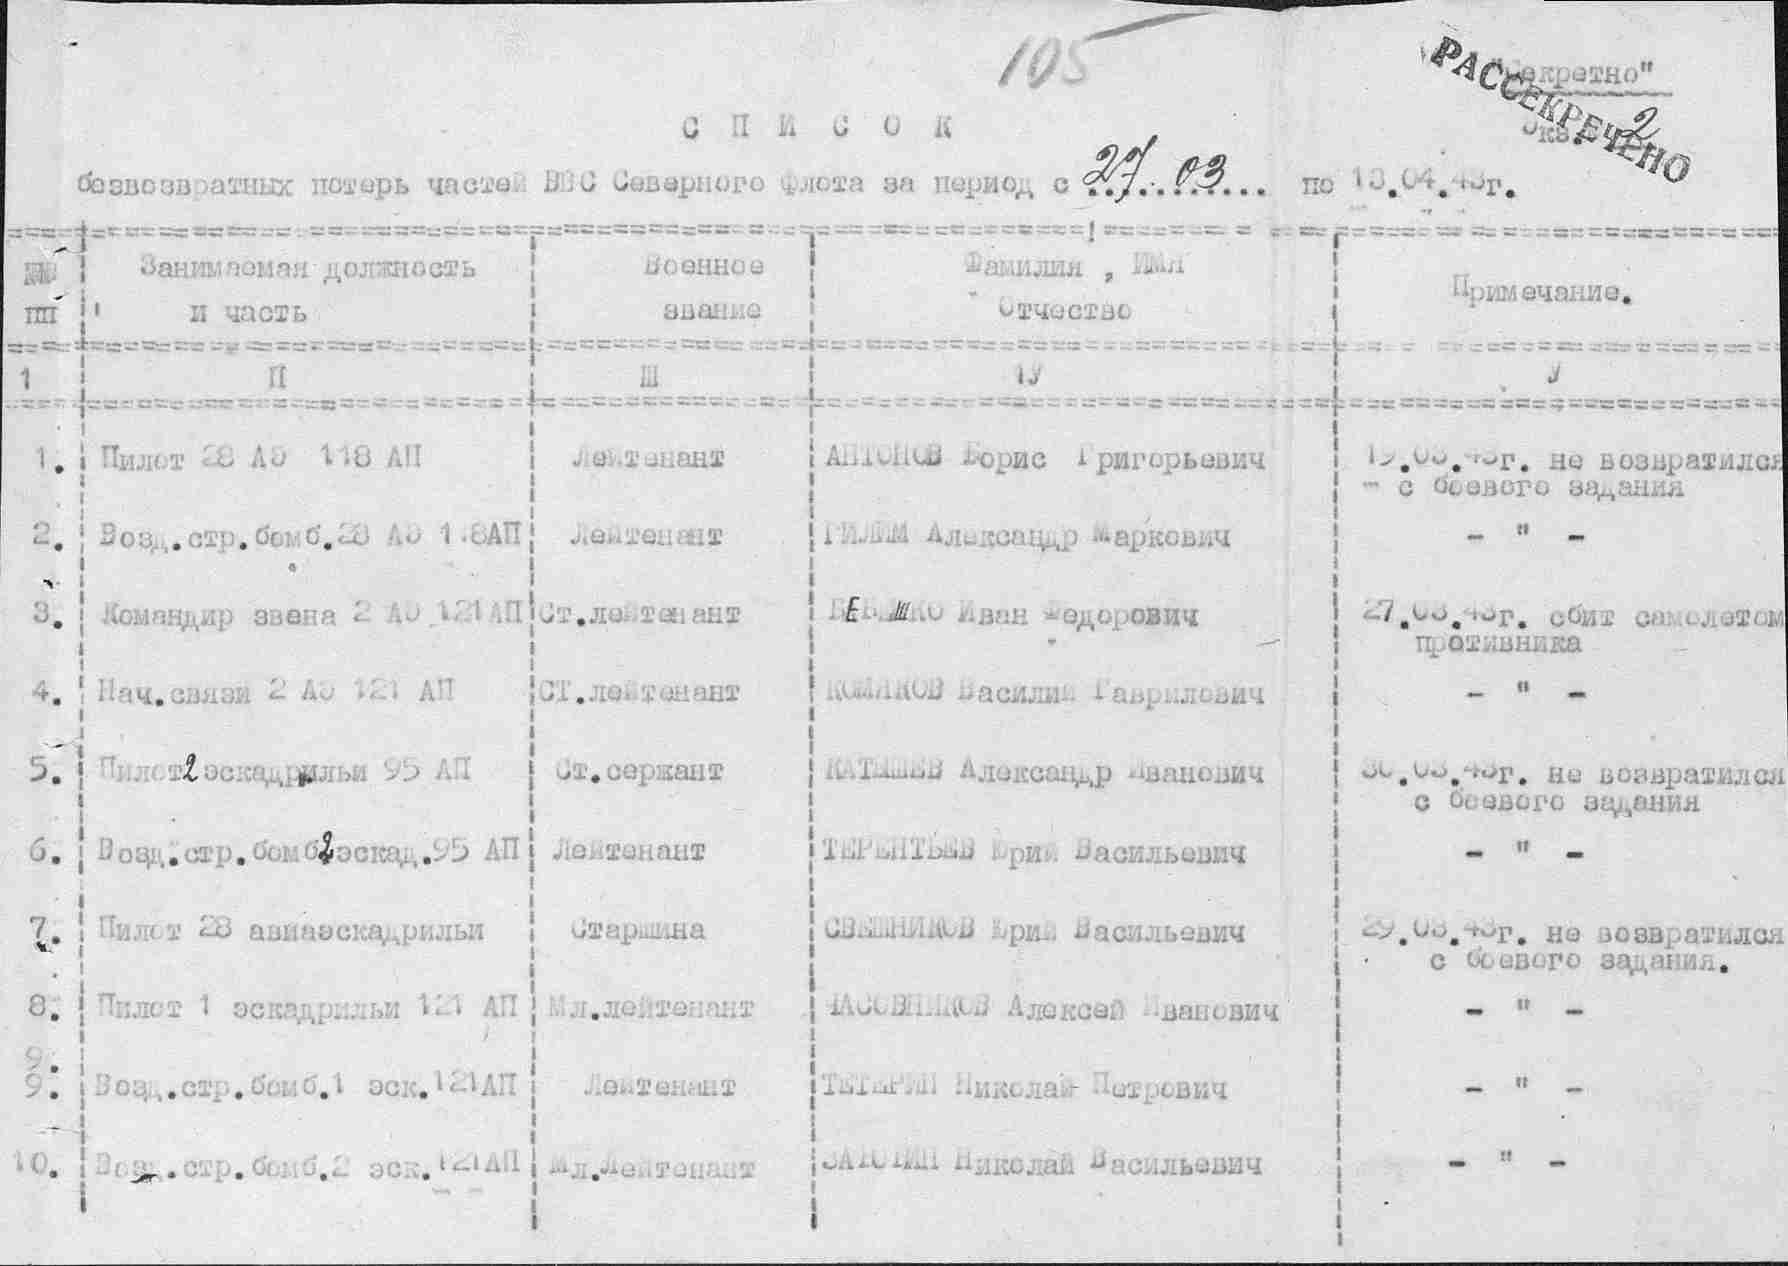 105
"Секретно"
РАССЕКРЕЧЕНО
Экз. 2
С П И С О К
безвозвратных потерь частей ВВС Северного флота за период с 27.03 по 13.04.43г.
№№ Занимаемая должность Военное Фамилия, ИМЯ Примечание.
пп и часть звание Отчество
1 П Ш 1У У
1. Пилот 28 АЭ 118 АП Лейтенант АНТОНОВ Борис Григорьевич 19.03.43г. не возвратился
с боевого задания
2. Возд.стр.бомб.28 АЭ 118АП Лейтенант Александр Маркович - " -
3. Командир звена 2 АЭ 121АП Ст.лейтенант Иван Федорович 27.03.43г. сбит самолетом
противника
4. Нач.связи 2 АЭ 121 АП СТ.лейтенант Василий Гаврилович - " -
5. Пилот 2 эскадрильи 95 АП Ст.сержант КАТЫШЕВ Александр Иванович 30.03.43г. не возвратился
с боевого задания
6. Возд.стр.бомб 2 эскад.95 АП Лейтенант ТЕРЕНТЬЕВ Юрий Васильевич - " -
7. Пилот 28 авиаэскадрильи Старшина СВЕШНИКОВ Юрий Васильевич 29.03.43г. не возвратился
с боевого задания.
8. Пилот 1 эскадрильи 121 АП Мл.лейтенант ЧАСОВНИКОВ Алексей Иванович - " -
9.
9. Возд.стр.бомб.1 эск.121АП Лейтенант ТЕТЕРИН Николай Петрович - " -
10. Возд.стр.бомб.2 эск.121АП Мл.Лейтенант Николай Васильевич - " -